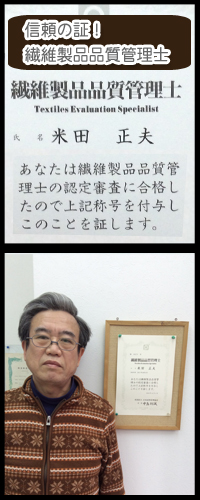 信頼の証！
繊維製品品質管理士
繊維製品品質管理士
Textiles Evaluation Specialist
氏 名 米田 正夫
あなたは繊維製品品質管
理士の認定審査に合格し
たので上記称号を付与し
このことを証します。
繊維製品品質管理士